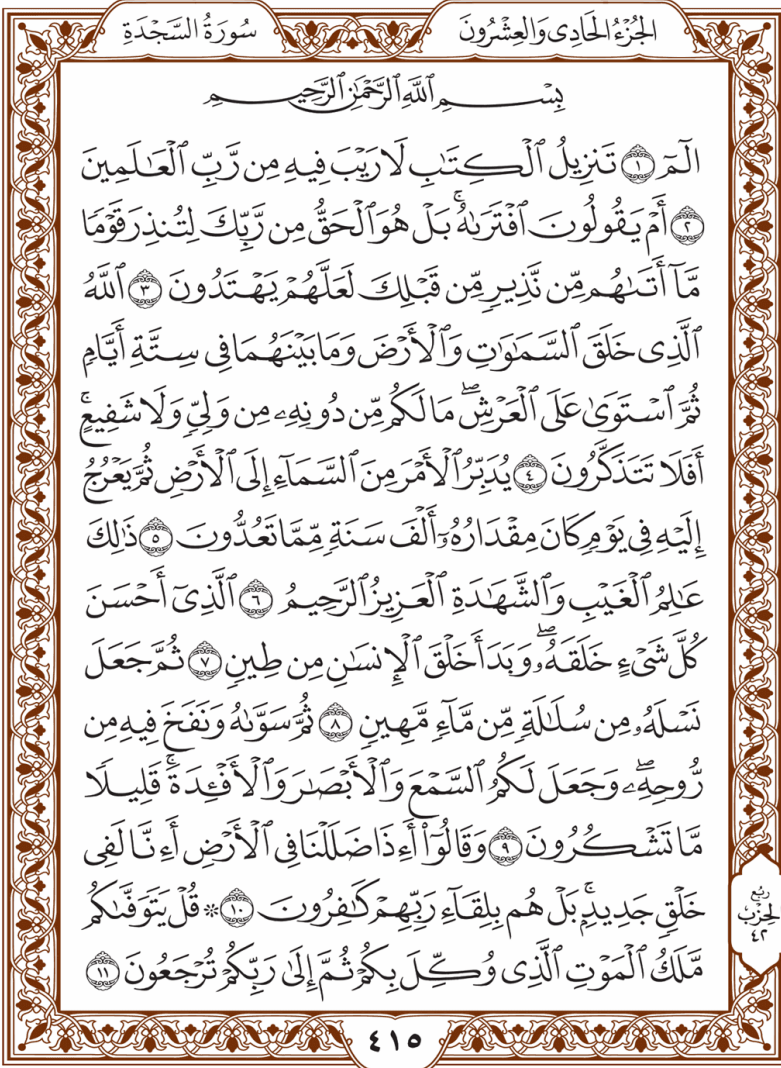 الجُزْءُ الحَادِى وَالعِشْرُونَ
سُورَةُ السَّجْدَةِ
بِسْمِ ٱللَّهِ ٱلرَّحْمَٰنِ ٱلرَّحِيمِ
الٓمٓ ١ تَنزِيلُ ٱلْكِتَٰبِ لَا رَيْبَ فِيهِ مِن رَّبِّ ٱلْعَٰلَمِينَ
٢ أَمْ يَقُولُونَ ٱفْتَرَىٰهُۚ بَلْ هُوَ ٱلْحَقُّ مِن رَّبِّكَ لِتُنذِرَ قَوْمًا
مَّآ أَتَىٰهُم مِّن نَّذِيرٍ مِّن قَبْلِكَ لَعَلَّهُمْ يَهْتَدُونَ ٣ ٱللَّهُ
ٱلَّذِى خَلَقَ ٱلسَّمَٰوَٰتِ وَٱلْأَرْضَ وَمَا بَيْنَهُمَا فِى سِتَّةِ أَيَّامٍ
ثُمَّ ٱسْتَوَىٰ عَلَى ٱلْعَرْشِۖ مَا لَكُم مِّن دُونِهِۦ مِن وَلِىٍّ وَلَا شَفِيعٍۚ
أَفَلَا تَتَذَكَّرُونَ ٤ يُدَبِّرُ ٱلْأَمْرَ مِنَ ٱلسَّمَآءِ إِلَى ٱلْأَرْضِ ثُمَّ يَعْرُجُ
إِلَيْهِ فِى يَوْمٍ كَانَ مِقْدَارُهُۥٓ أَلْفَ سَنَةٍ مِّمَّا تَعُدُّونَ ٥ ذَٰلِكَ
عَٰلِمُ ٱلْغَيْبِ وَٱلشَّهَٰدَةِ ٱلْعَزِيزُ ٱلرَّحِيمُ ٦ ٱلَّذِىٓ أَحْسَنَ
كُلَّ شَىْءٍ خَلَقَهُۥۖ وَبَدَأَ خَلْقَ ٱلْإِنسَٰنِ مِن طِينٍ ٧ ثُمَّ جَعَلَ
نَسْلَهُۥ مِن سُلَٰلَةٍ مِّن مَّآءٍ مَّهِينٍ ٨ ثُمَّ سَوَّىٰهُ وَنَفَخَ فِيهِ مِن
رُّوحِهِۦۖ وَجَعَلَ لَكُمُ ٱلسَّمْعَ وَٱلْأَبْصَٰرَ وَٱلْأَفْـِٔدَةَۚ قَلِيلًا
مَّا تَشْكُرُونَ ٩ وَقَالُوٓا۟ أَءِذَا ضَلَلْنَا فِى ٱلْأَرْضِ أَءِنَّا لَفِى
خَلْقٍ جَدِيدٍۭۚ بَلْ هُم بِلِقَآءِ رَبِّهِمْ كَٰفِرُونَ ١٠ ۞ قُلْ يَتَوَفَّىٰكُم
مَّلَكُ ٱلْمَوْتِ ٱلَّذِى وُكِّلَ بِكُمْ ثُمَّ إِلَىٰ رَبِّكُمْ تُرْجَعُونَ ١١
رُبُع
الحِزْبِ
٤٢
٤١٥